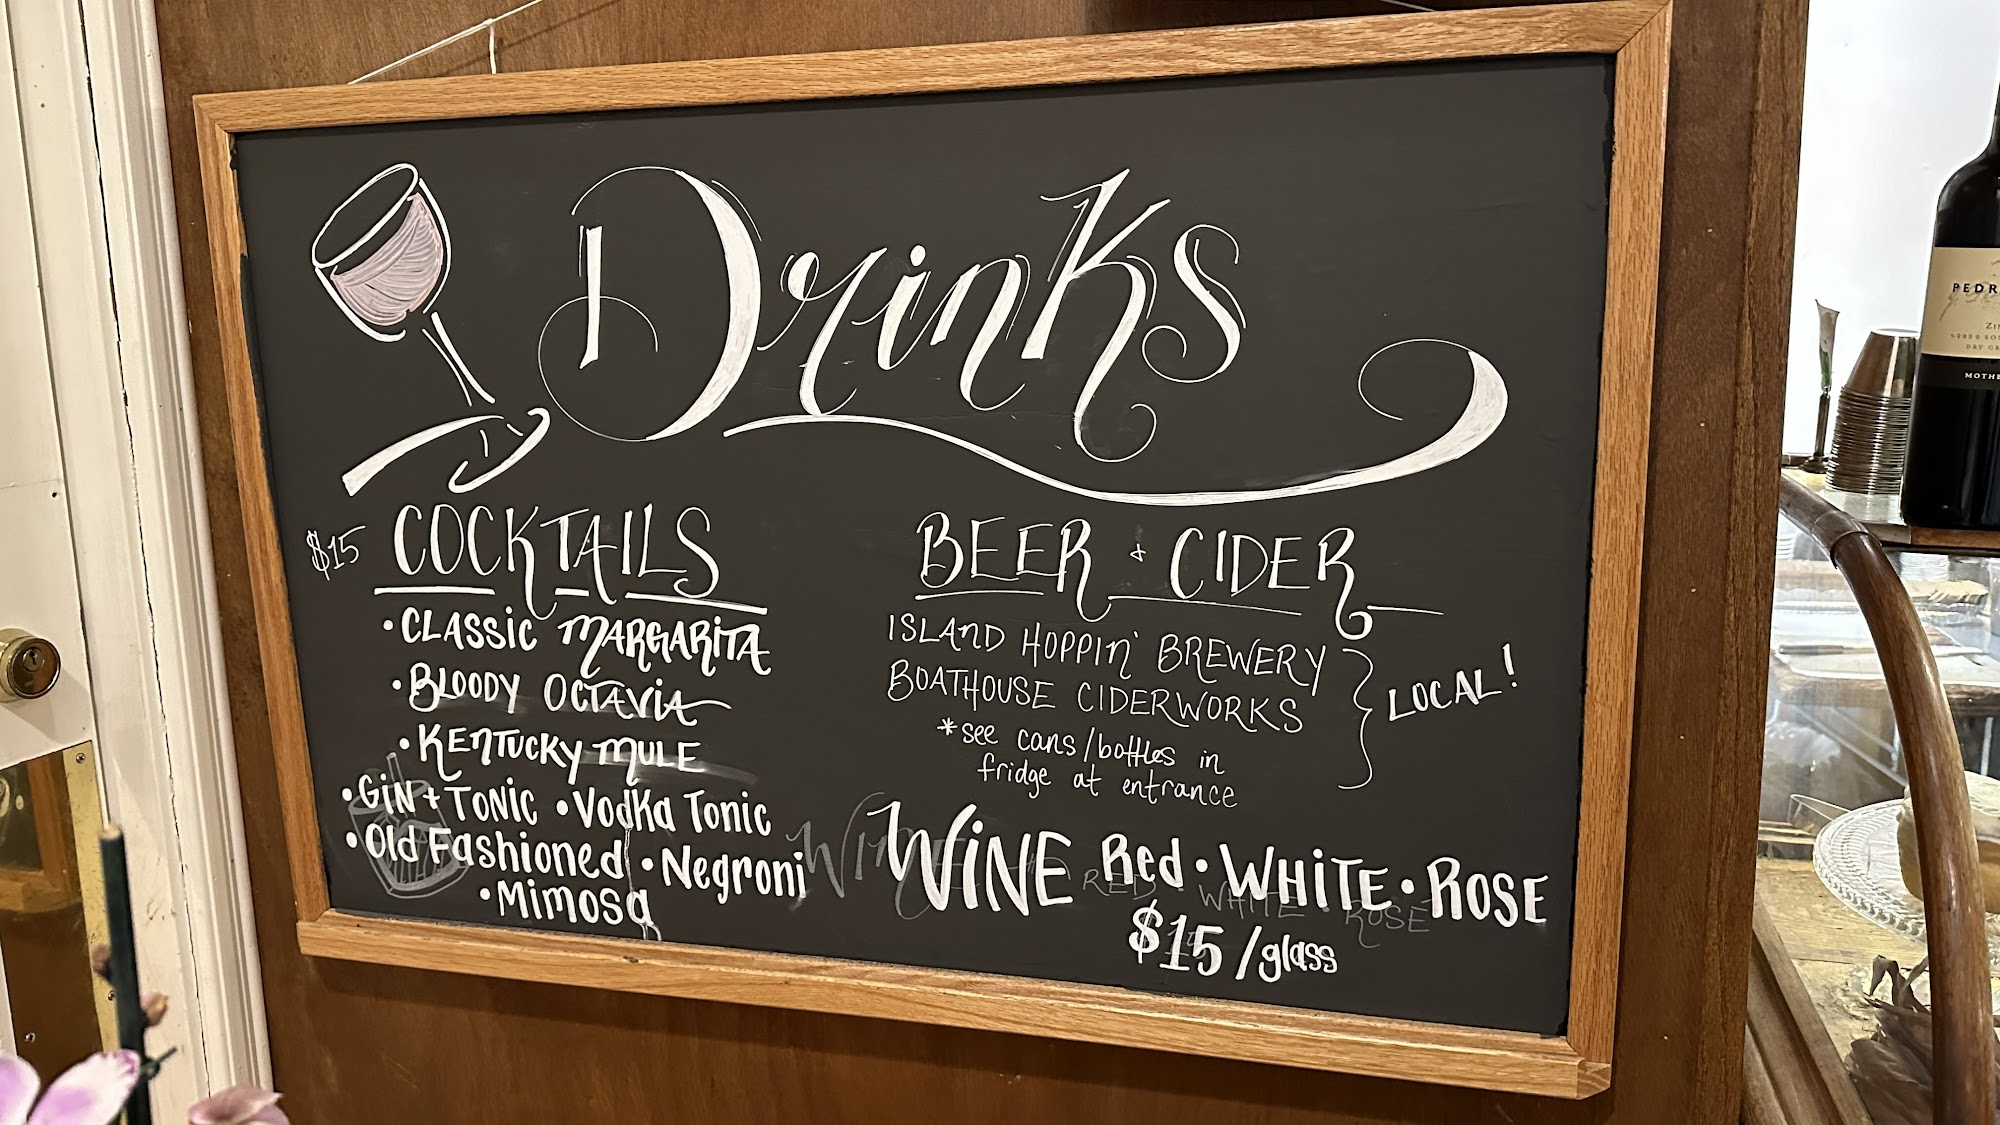 Drinks
$15 COCKTAILS
• CLASSIC MARGARITA
• BLOODY OCTAVIA
• KENTUCKY MULE
• GIN + TONIC • Vodka Tonic
• Old Fashioned • Negroni
• Mimosa
BEER + CIDER
ISLAND HOPPIN' BREWERY
BOATHOUSE CIDERWORKS
LOCAL!
*see cans/bottles in
fridge at entrance
WINE Red • WHITE • ROSE
WINE RED • WHITE • ROSE
$15/glass
PEDR
ZIN
DRY
MOTHE